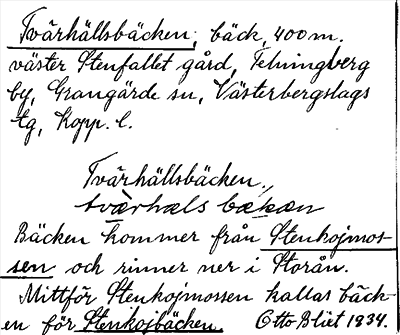 Tvärhällsbäcken, bäck, 400 m.
väster Stenfallet gård, Telningberg
by, Grangärde sn, Västerbergslags
tg, Kopp. l.
Tvärhällsbäcken,
tværhæls bækæn
Bäcken kommer från Stenkojmos-
sen och rinner ner i Storån.
Mittför Stenkojmossen kallas bäck-
en för Stenkojbäcken. Otto Blixt 1934.